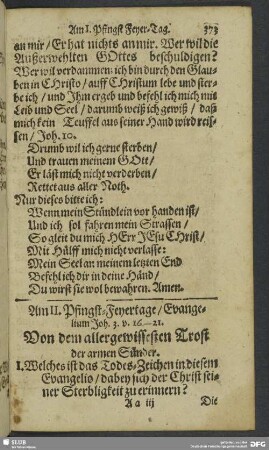 Am I. Pfingst Feyer-Tag. 373
an mir / Er hat nichts an mir. Wer wil die
Außerwehlten GOttes beschuldigen?
Wer wil verdammen: ich bin durch den Glau-
ben in CHristo / auff CHristum lebe und ster-
be ich / und Jhm ergeb und befehl ich mich mit
Leib und Seel / darumb weiß ich gewiß / daß
mich kein Teuffel aus seiner Hand wird reis-
sen / Joh. 10.
Drumb wil ich gerne sterben /
Und trauen meinem GOtt /
Er läst mich nicht verderben /
Rettet aus aller Noth.
Nur dieses bitte ich:
Wenn mein Stündlein vor handen ist /
Und ich sol fahren mein Strassen /
So gleit du mich HErr JEsu CHrist /
Mit Hülff mich nicht verlasse:
Mein Seel an meinem letzten End
Befehl ich dir in deine Händ /
Du wirst sie wol bewahren. Amen.
Am II. Pfingst-Feyertage / Evange-
lium Joh. 3. v. 16.—21.
Von dem allergewissesten Trost
der armen Sünder.
I. Welches ist das Todes-Zeichen in diesem
Evangelio / dabey sich der Christ sei-
ner Sterbligkeit zu erinnern?
A a iij Die
SLUB
DFG